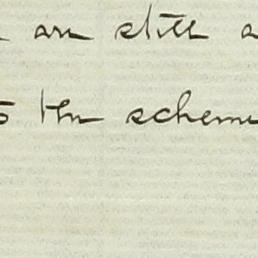 are still a
to the scheme